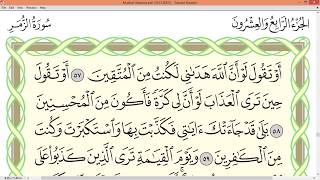 سُورَةُ الزُّمَرِ
الجُزْءُ الرَّابِعُ وَالعِشْرُونَ
أَوْ تَقُولَ لَوْ أَنَّ ٱللَّهَ هَدَىٰنِى لَكُنتُ مِنَ ٱلْمُتَّقِينَ ٥٧ أَوْ تَقُولَ
حِينَ تَرَى ٱلْعَذَابَ لَوْ أَنَّ لِى كَرَّةً فَأَكُونَ مِنَ ٱلْمُحْسِنِينَ
٥٨ بَلَىٰ قَدْ جَآءَتْكَ ءَايَٰتِى فَكَذَّبْتَ بِهَا وَٱسْتَكْبَرْتَ وَكُنتَ
مِنَ ٱلْكَٰفِرِينَ ٥٩ وَيَوْمَ ٱلْقِيَٰمَةِ تَرَى ٱلَّذِينَ كَذَبُوا۟ عَلَى